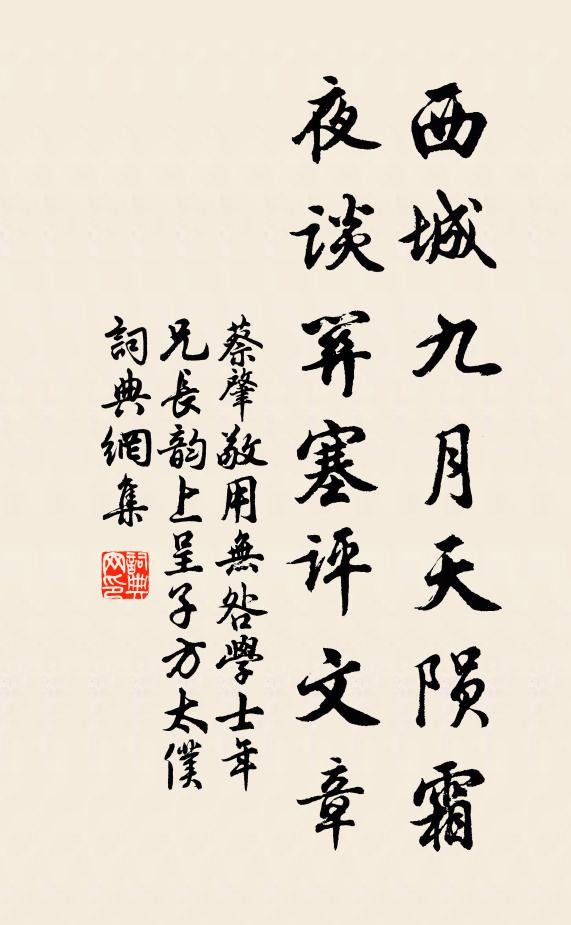 西城九月天陨霜
夜谈關塞评文章
蔡肇敬用無咎學士年
兄長韵上呈子方太僕
詞典網集
詞典
网印